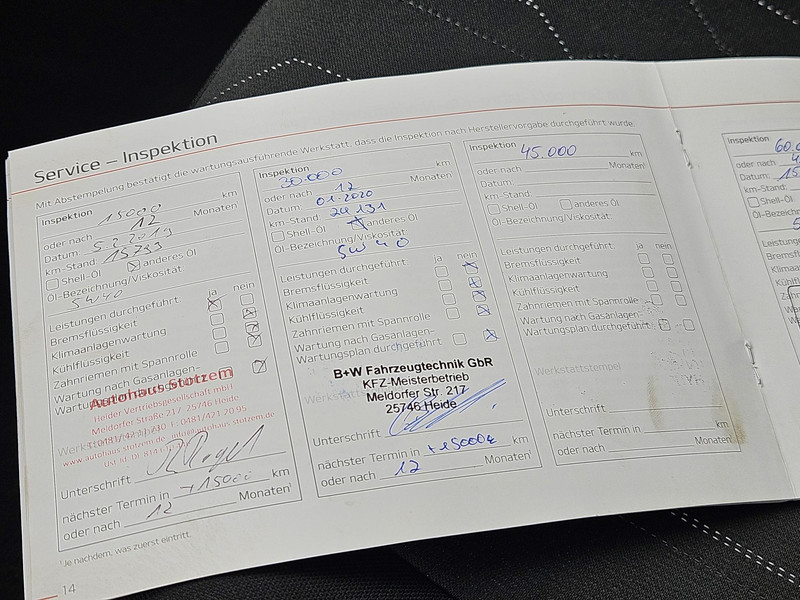 Service – Inspektion
Mit Abstempelung bestätigt die wartungsausführende Werkstatt, dass die Inspektion nach Herstellervorgabe durchgeführt wurde.
Inspektion 15000 km
oder nach 12 Monaten¹
Datum: 5.2.2019
km-Stand: 15733
Shell-Öl anderes Öl
Öl-Bezeichnung/Viskosität:
5W40
Leistungen durchgeführt: ja nein
Bremsflüssigkeit
Klimaanlagenwartung
Kühlflüssigkeit
Zahnriemen mit Spannrolle
Wartung nach Gasanlagen-
Autohaus Stotzem
Heider Vertriebsgesellschaft mbH
Meldorfer Straße 217 25746 Heide
Unterschrift
nächster Termin in +15000 km
oder nach 12 Monaten¹
Inspektion 30.000 km
oder nach 12 Monaten¹
Datum: 01-2020
km-Stand: 29131
Shell-Öl anderes Öl
Öl-Bezeichnung/Viskosität:
5W40
Leistungen durchgeführt: ja nein
Bremsflüssigkeit
Klimaanlagenwartung
Kühlflüssigkeit
Zahnriemen mit Spannrolle
Wartung nach Gasanlagen-
Wartungsplan durchgeführt
B+W Fahrzeugtechnik GbR
KFZ-Meisterbetrieb
Meldorfer Str. 217
25746 Heide
Unterschrift
nächster Termin in +15000 km
oder nach 12 Monaten¹
Inspektion 45.000 km
oder nach Monaten¹
Datum:
km-Stand:
Shell-Öl anderes Öl
Öl-Bezeichnung/Viskosität:
Leistungen durchgeführt: ja nein
Bremsflüssigkeit
Klimaanlagenwartung
Kühlflüssigkeit
Zahnriemen mit Spannrolle
Wartung nach Gasanlagen-
Wartungsplan durchgeführt
Werkstattstempel
Unterschrift
nächster Termin in km
oder nach Monaten¹
¹Je nachdem, was zuerst eintritt.
14
Inspektion
oder nach
Datum:
km-Stand:
Shell-Öl
Öl-Bezeichnung